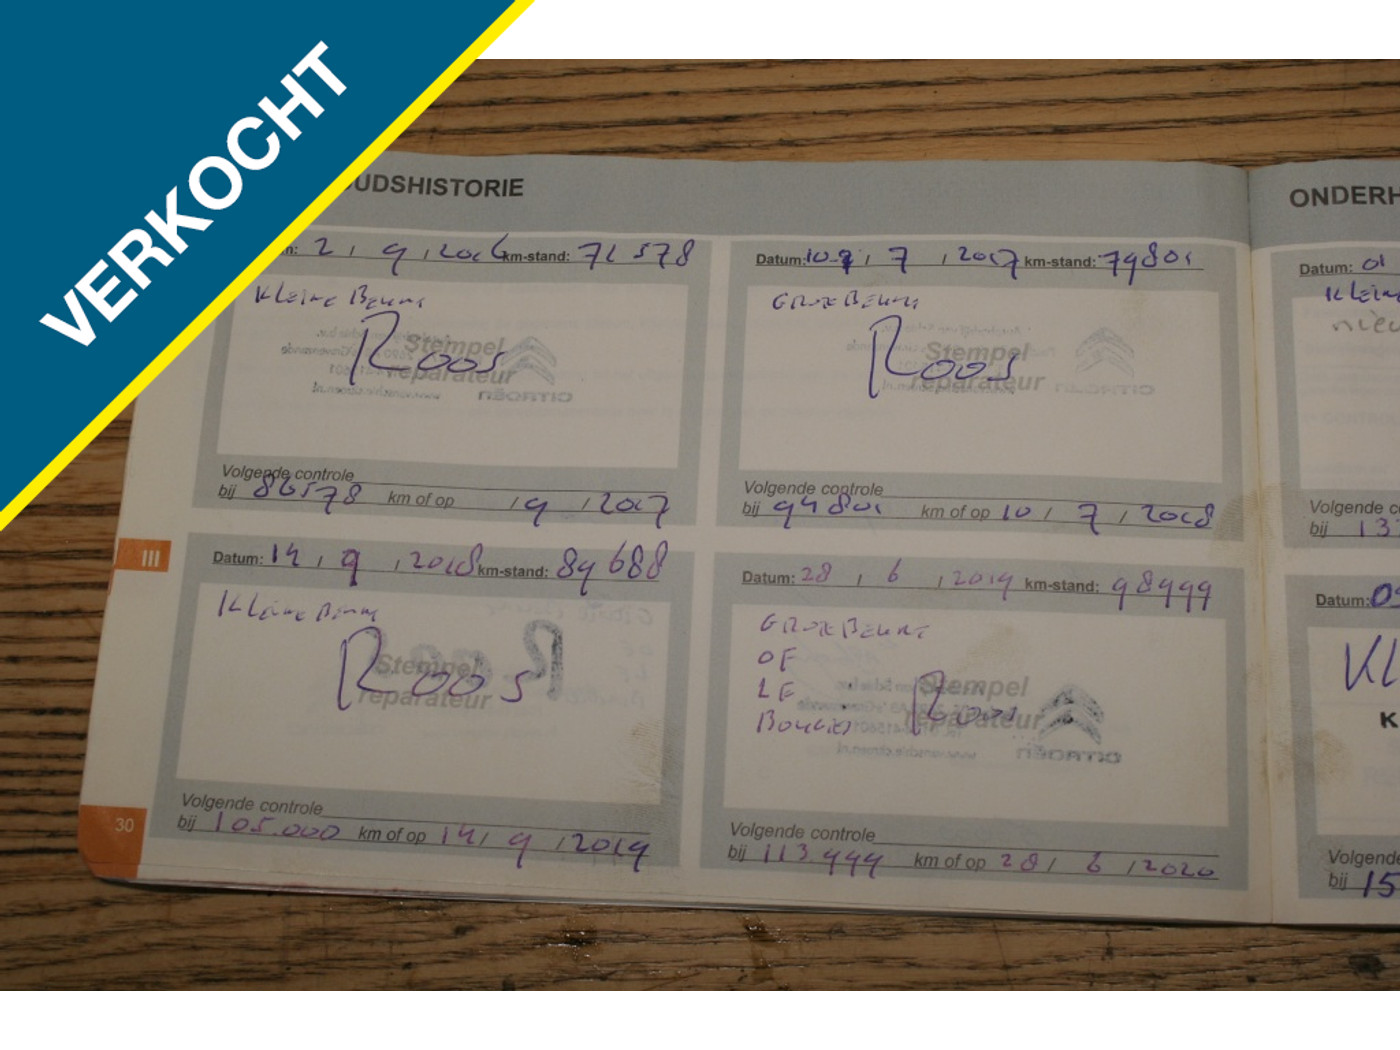 VERKOCHT
UDSHISTORIE
2 / 9 / 2016 km-stand: 71578
Kleine Beurt
Stempel
reparateur
Roos
Volgende controle
bij 86578 km of op / 9 / 2017
Datum: 10 / 7 / 2017 km-stand: 79801
Grote Beurt
Stempel
reparateur
Roos
Volgende controle
bij 94801 km of op 10 / 7 / 2018
III
Datum: 14 / 9 / 2018 km-stand: 89688
Kleine Beurt
Stempel
reparateur
Roos
Volgende controle
bij 105.000 km of op 14 / 9 / 2019
30
Datum: 28 / 6 / 2019 km-stand: 98999
Grote Beurt
OF
LF
Bougies
Stempel
reparateur
Roos
Volgende controle
bij 113999 km of op 28 / 6 / 2020
ONDERH
Datum: 01
Klein
nieu
Volgende co
bij 13
Datum: 0
Kl
K
Volgende
bij 15